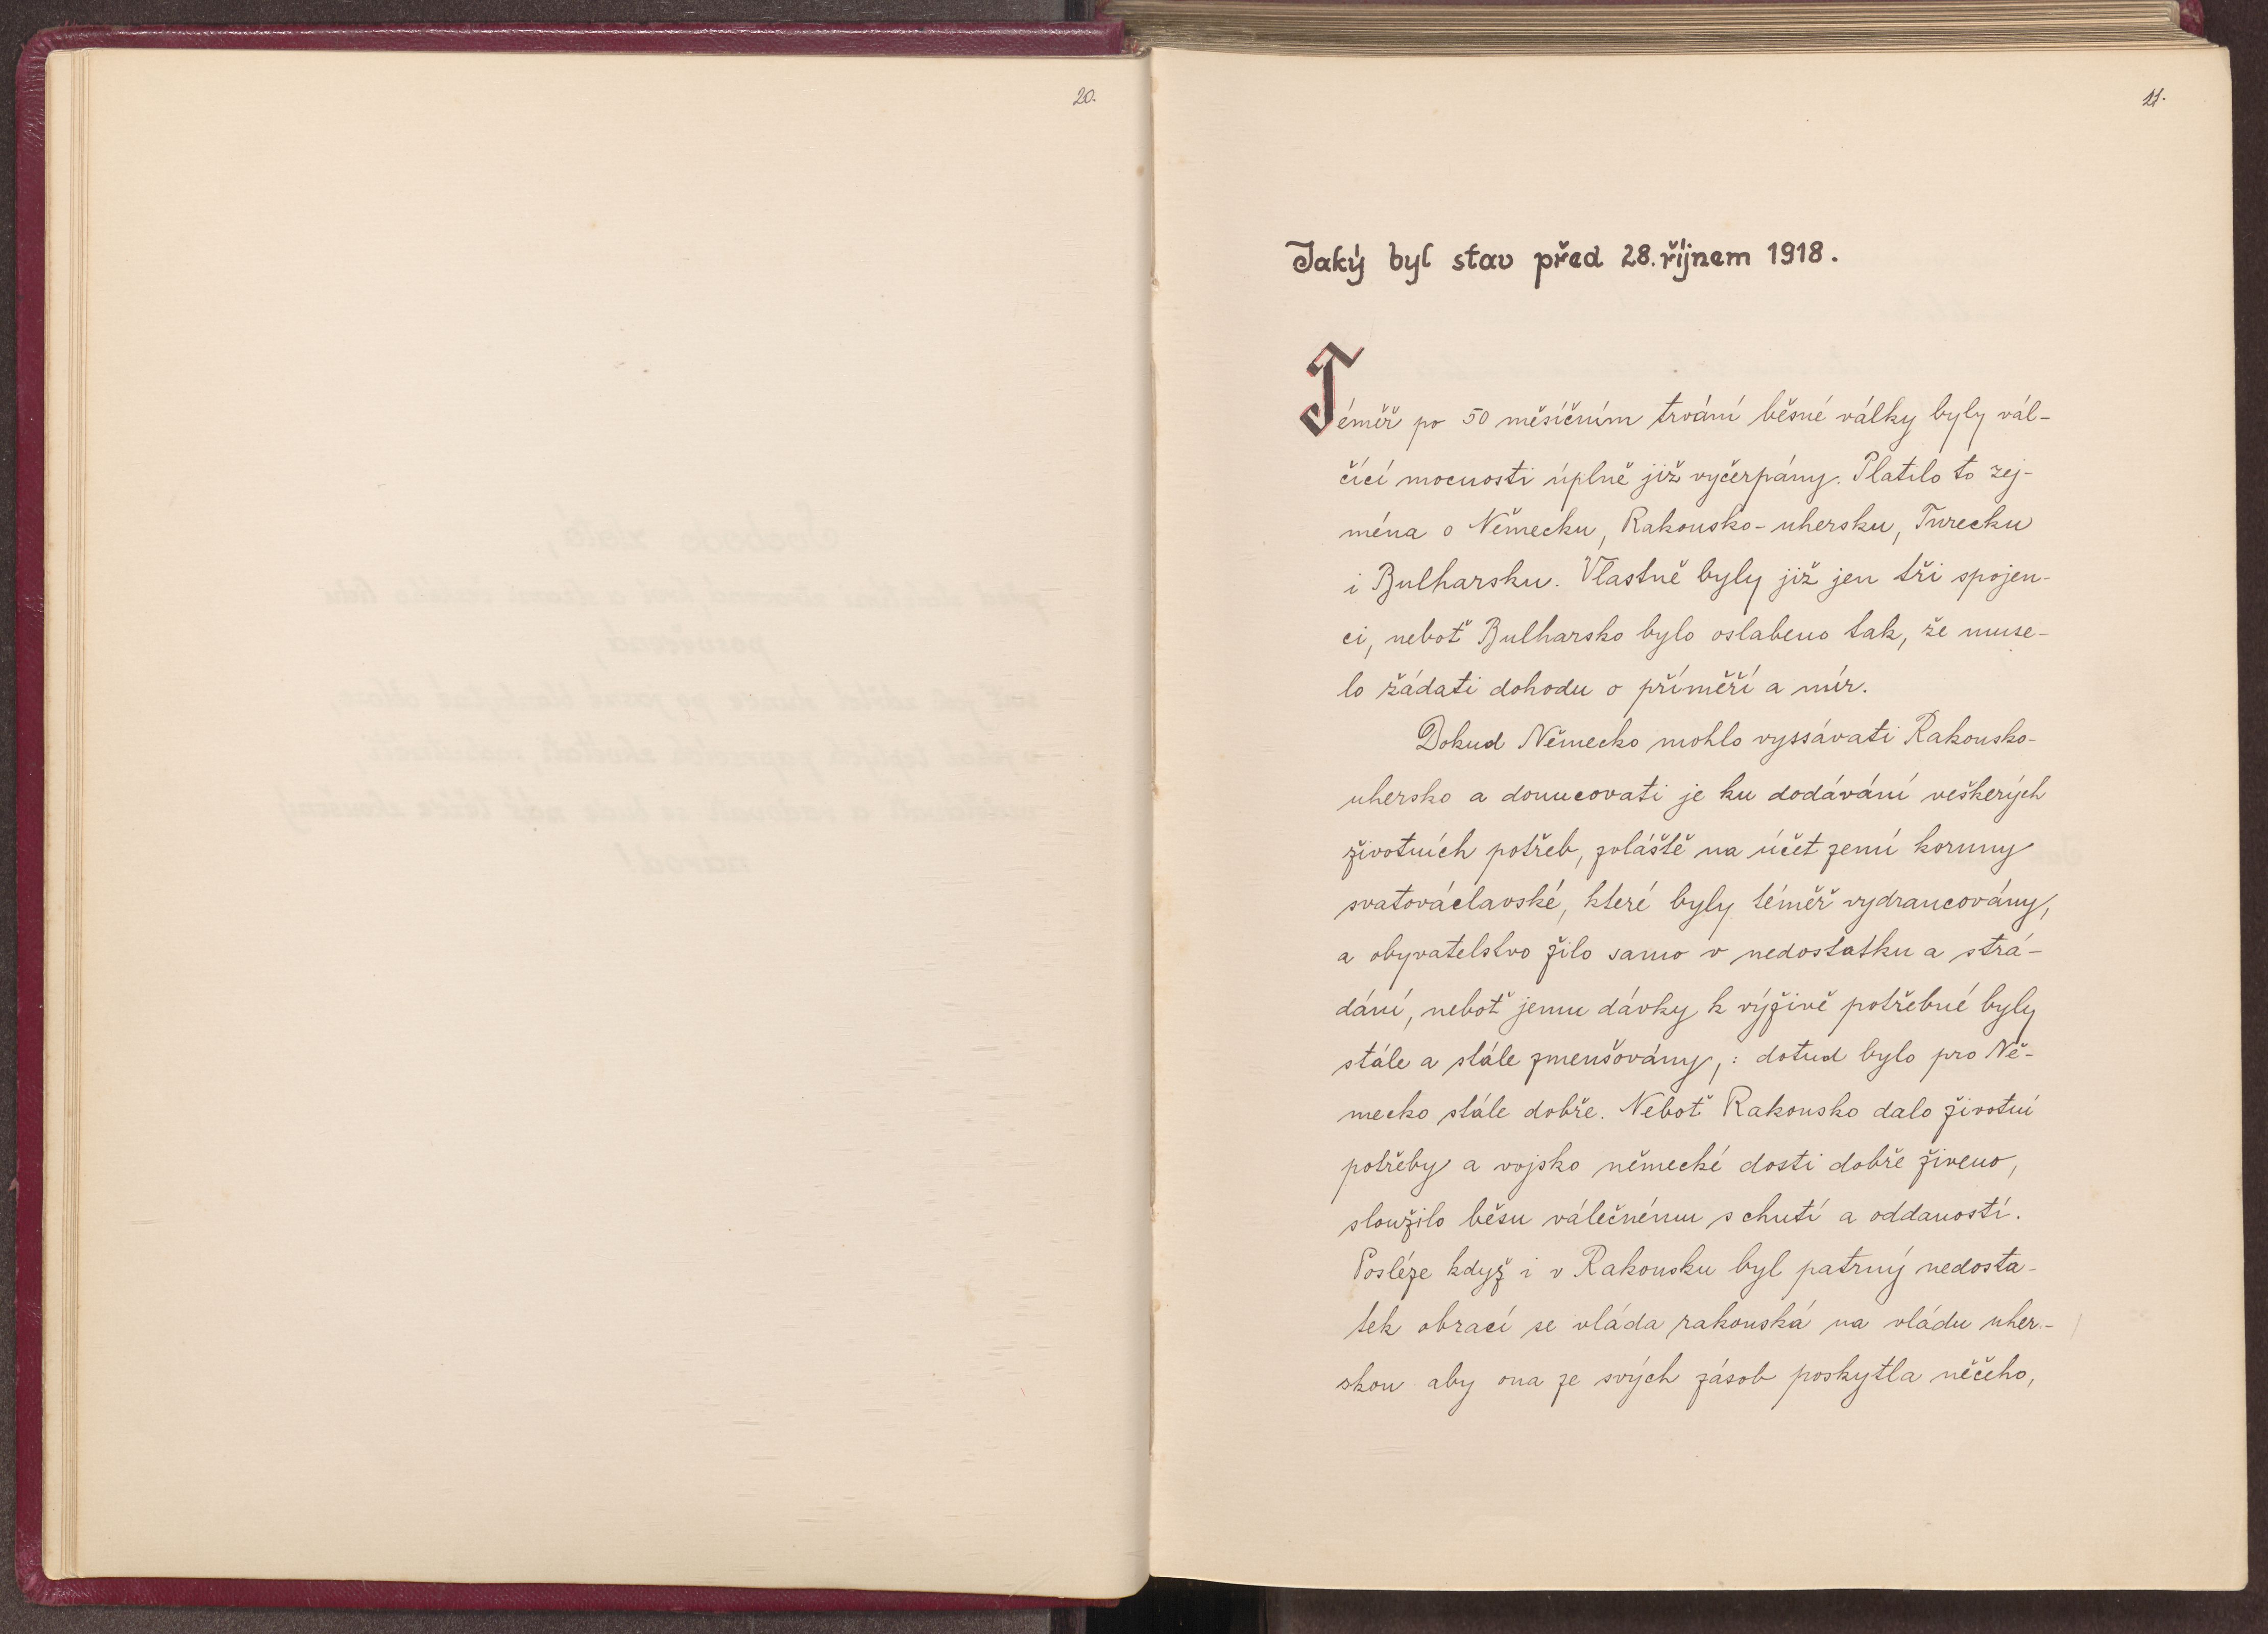 20.
21.
Jaký byl stav před 28. říjnem 1918.
Téměř po 50 měsíčním trvání běsné války byly vál-
čící mocnosti úplně již vyčerpány. Platilo to zej-
ména o Německu, Rakousko-uhersku, Turecku
i Bulharsku. Vlastně byly již jen tři spojen-
ci, neboť Bulharsko bylo oslabeno tak, že muse-
lo žádati dohodu o příměří a mír.
Dokud Německo mohlo vyssávati Rakousko-
uhersko a donucovati je ku dodávání veškerých
životních potřeb, zvláště na účet zemí koruny
svatováclavské, které byly téměř vydrancovány,
a obyvatelstvo žilo samo v nedostatku a strá-
dání, neboť jemu dávky k výživě potřebné byly
stále a stále zmenšovány,: dotud bylo pro Ně-
mecko stále dobře. Neboť Rakousko dalo životní
potřeby a vojsko německé dosti dobře živeno,
sloužilo běsu válečnému s chutí a oddaností.
Posléze když i v Rakousku byl patrný nedosta-
tek obrací se vláda rakouská na vládu uher-
skou aby ona ze svých zásob poskytla něčeho,